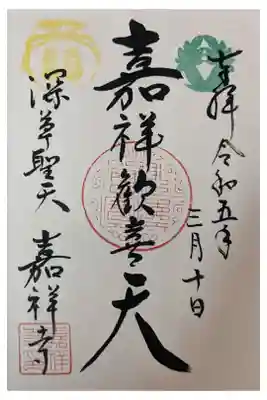 奉拝 令和五年
三月十日
嘉祥歓喜天
深草聖天
嘉祥寺